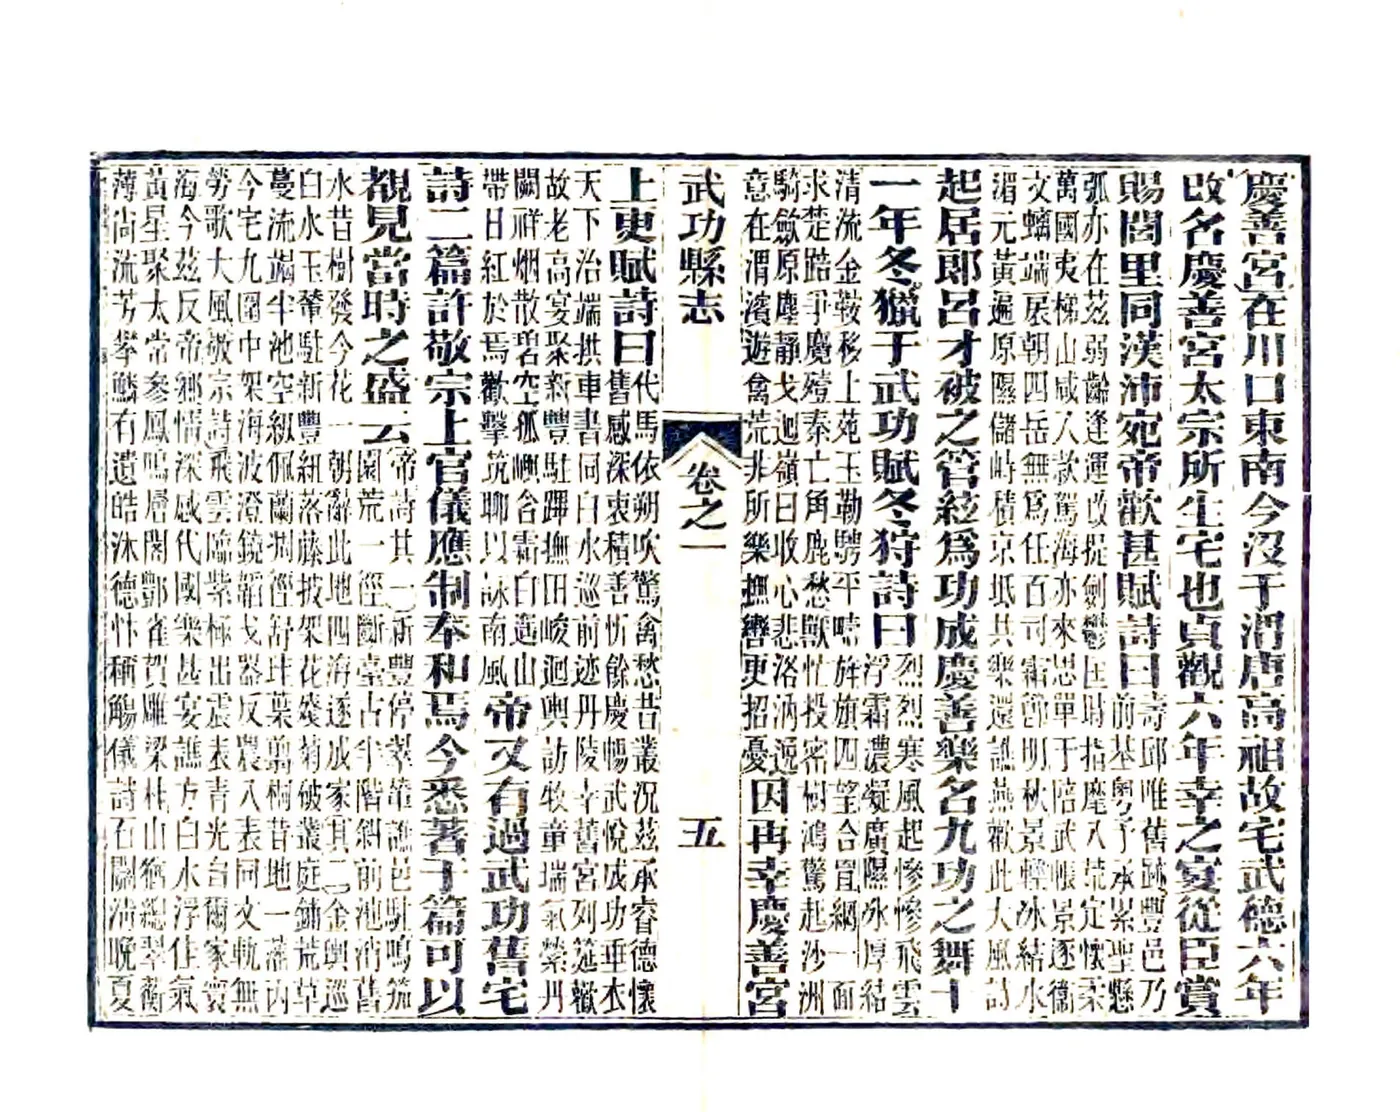 慶善宮在川口東南今沒于渭唐高祖故宅武德六年
改名慶善宮太宗所生宅也貞觀六年幸之宴從臣賞
賜閭里同漢沛宛帝歡甚賦詩曰
壽邱唯舊跡豐邑乃
前基粵予承累聖懸
弧亦在茲弱齡逢運改提劍鬱匡時指麾八荒定懷柔
萬國夷梯山咸入款駕海亦來思單于陪武帳景逐衞
文螭端扆朝四岳無爲任百司霜節明秋景輕冰結水
湄元黃遍原隰儲峙積京坻共樂還譙燕歡此大風詩
起居郎呂才被之管絃爲功成慶善樂名九功之舞十
一年冬獵于武功賦冬狩詩曰
烈烈寒風起慘慘飛雲
浮霜濃凝廣隰冰厚結
清流金鞍移上苑玉勒騁平疇旌旗四望合罝網一面
求楚踣爭魔殪秦亡角鹿愁獸忙投密樹鴻驚起沙洲
騎斂原塵靜戈迴嶺日收心悲洛汭逸
意在渭濱遊禽荒非所樂撫轡更招憂
因再幸慶善宮
武功縣志
卷之一
五
上更賦詩曰
代馬依朔吹驚禽愁昔叢況茲承睿德懷
舊感深衷積善忻餘慶暢武悅成功垂衣
天下治端拱車書同白水巡前迹丹陵幸舊宮列筵歡
故老高宴聚新豐駐蹕撫田畯迴輿訪牧童瑞氣縈丹
闕祥烟散碧空孤嶼含霜白遙山
帶日紅於焉歡擊筑聊以詠南風
帝又有過武功舊宅
詩二篇許敬宗上官儀應制奉和焉今悉著于篇可以
覩見當時之盛云
帝詩其一新豐停翠輦譙邑駐鳴笳
園荒一徑斷臺古半階斜前池消舊
水昔樹發今花一朝辭此地四海遂成家其二金輿巡
白水玉輦駐新豐紐落藤披架花殘菊破叢庭鋪荒草
蔓流竭半池空紉佩蘭凋徑舒圭葉剪桐昔地一蕃內
今宅九圍中架海波澄鏡韜戈器反農八表同文軌無
勞歌大風敬宗詩飛雲臨紫極出震表青光自爾家寰
海今茲反帝鄉情深感代國樂甚宴譙方白水浮佳氣
黃星聚太常參鳳鳴層閣酆雀賀雕梁桂山猶總翠蘅
薄尚流芳攀鱗有遺皓沐德忭種觴儀詩石關清晩夏